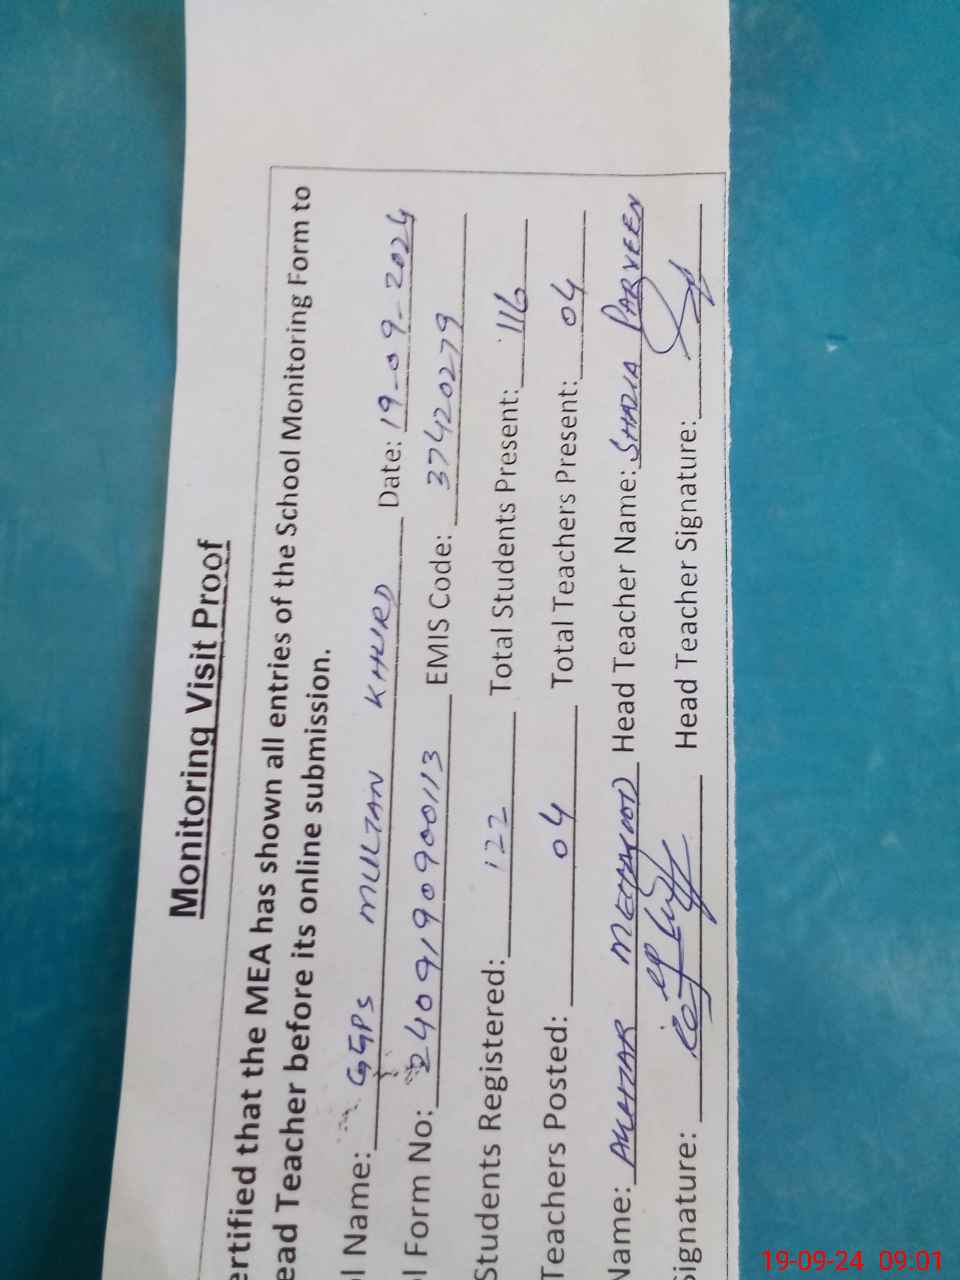 Monitoring Visit Proof
ertified that the MEA has shown all entries of the School Monitoring Form to
ead Teacher before its online submission.
l Name: GGPS MULTAN KHURD Date: 19-09-2024
l Form No: 2409190900113 EMIS Code: 37420279
Students Registered: 122 Total Students Present: 116
Teachers Posted: 04 Total Teachers Present: 04
Name: AKHTAR MEHMOOD Head Teacher Name: SHAZIA PARVEEN
Signature: Head Teacher Signature:
19-09-24 09:01